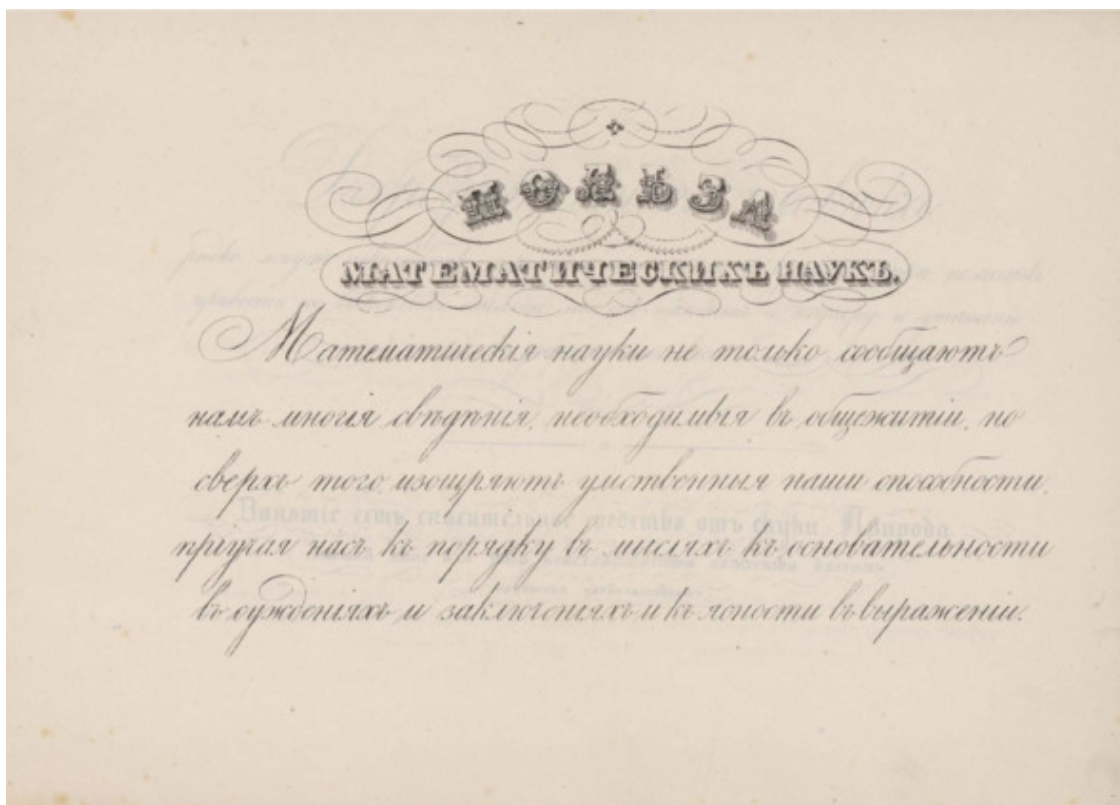 ПОЛЬЗА
МАТЕМАТИЧЕСКИХЪ НАУКЪ.
Математическія науки не только сообщаютъ
намъ многія свѣдѣнія, необходимыя въ общежитіи, но
сверхъ того, изощряютъ умственныя наши способности,
пріучая насъ къ порядку въ мысляхъ къ основательности
въ сужденіяхъ и заключеніяхъ и къ ясности въ выраженіи.